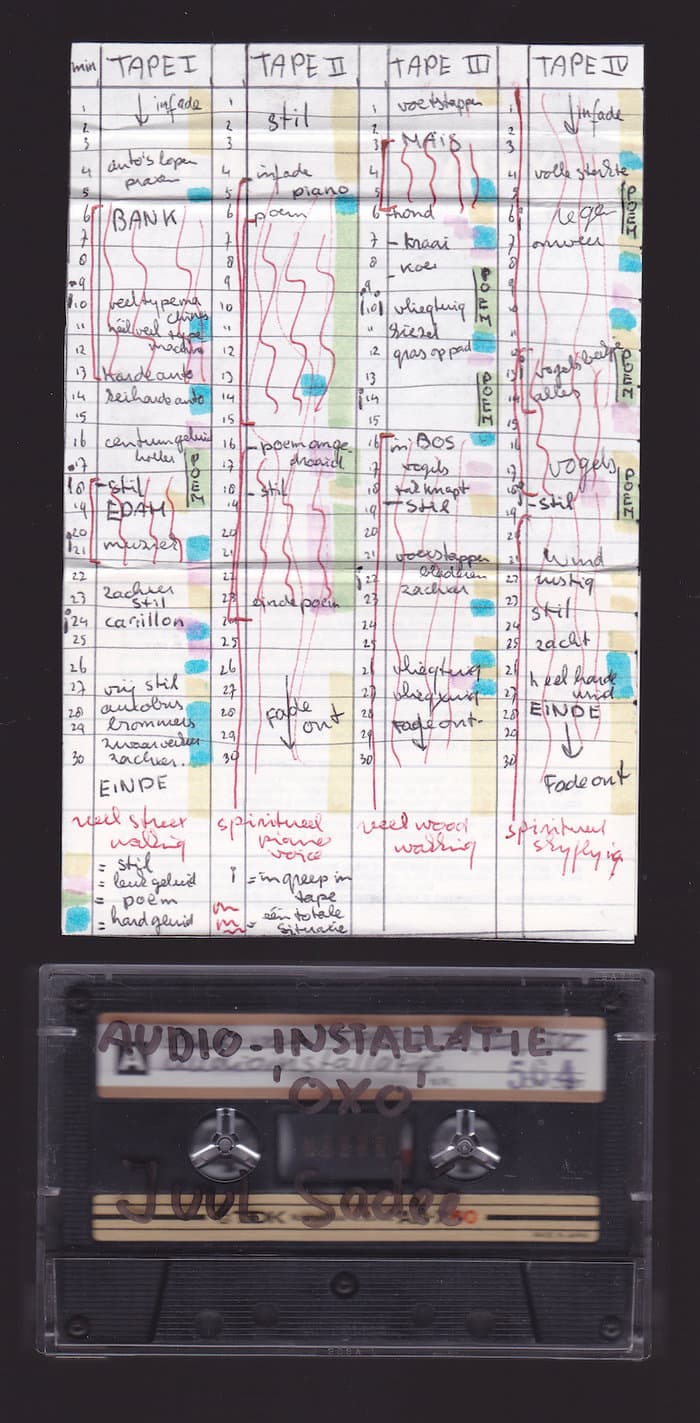 min TAPE I
1 ↓ infade
2
3
4 auto's lopen
5 praten
6 BANK
7
8
9
10 veel typema
11 chines heel veel type
12 machine
13 harde auto
14 keiharde auto
15
16 centrumgeluid
17
18 - stil
19 EDAH
20
21 muziek
22
23 zachter
stil
24 carillon
25
26
27 vrij stil
28 autobus
29 brommers
zwaar verkeer
30 zachter.
EINDE
POEM
veel street
walking
TAPE II
1
2 stil
3
4 infade
5 piano
6 poem
7
8
9
10
11
12
13
14
15
16 - poem ange-
17 draaid
18 - stil
19
20
21
22
23 einde poem
24
25
26
27
28 Fade
29 out
30
spiritueel
piano
voice
TAPE III
1 voetstappen
2
3 MAÏS
4
5
6 - hond
7 - kraai
8 - koei
9
10 vliegtuig
11
12 gras op pad
13
14
15
16 in BOS
17 vogels
18 tak knapt
19 - stil
20
21 voetstappen
22 bladeren
23 zachter
24
25
26 vliegtuig
27 vliegtuig
28 Fade out
29
30
POEM
POEM
veel wood
walking
TAPE IV
1 ↓ infade
2
3
4 volle sterkte
5
6 regen
7 onweer
8
9
10
11
12
13 vogels beetje
14 alles
15
16
17 vogels
18 - stil
19
20
21 wind
22 rustig
23 stil
24
25 zacht
26
27 heel harde
wind
28 EINDE
29
30
Fade out
POEM
POEM
POEM
spiritueel
skyflying
= stil
= leuk geluid
= poem
= hard geluid
i = ingreep in
tape
= één totale
situatie
AUDIO-INSTALLATIE
A
564
'OXO'
Juul Sadée
TDK
MADE IN JAPAN